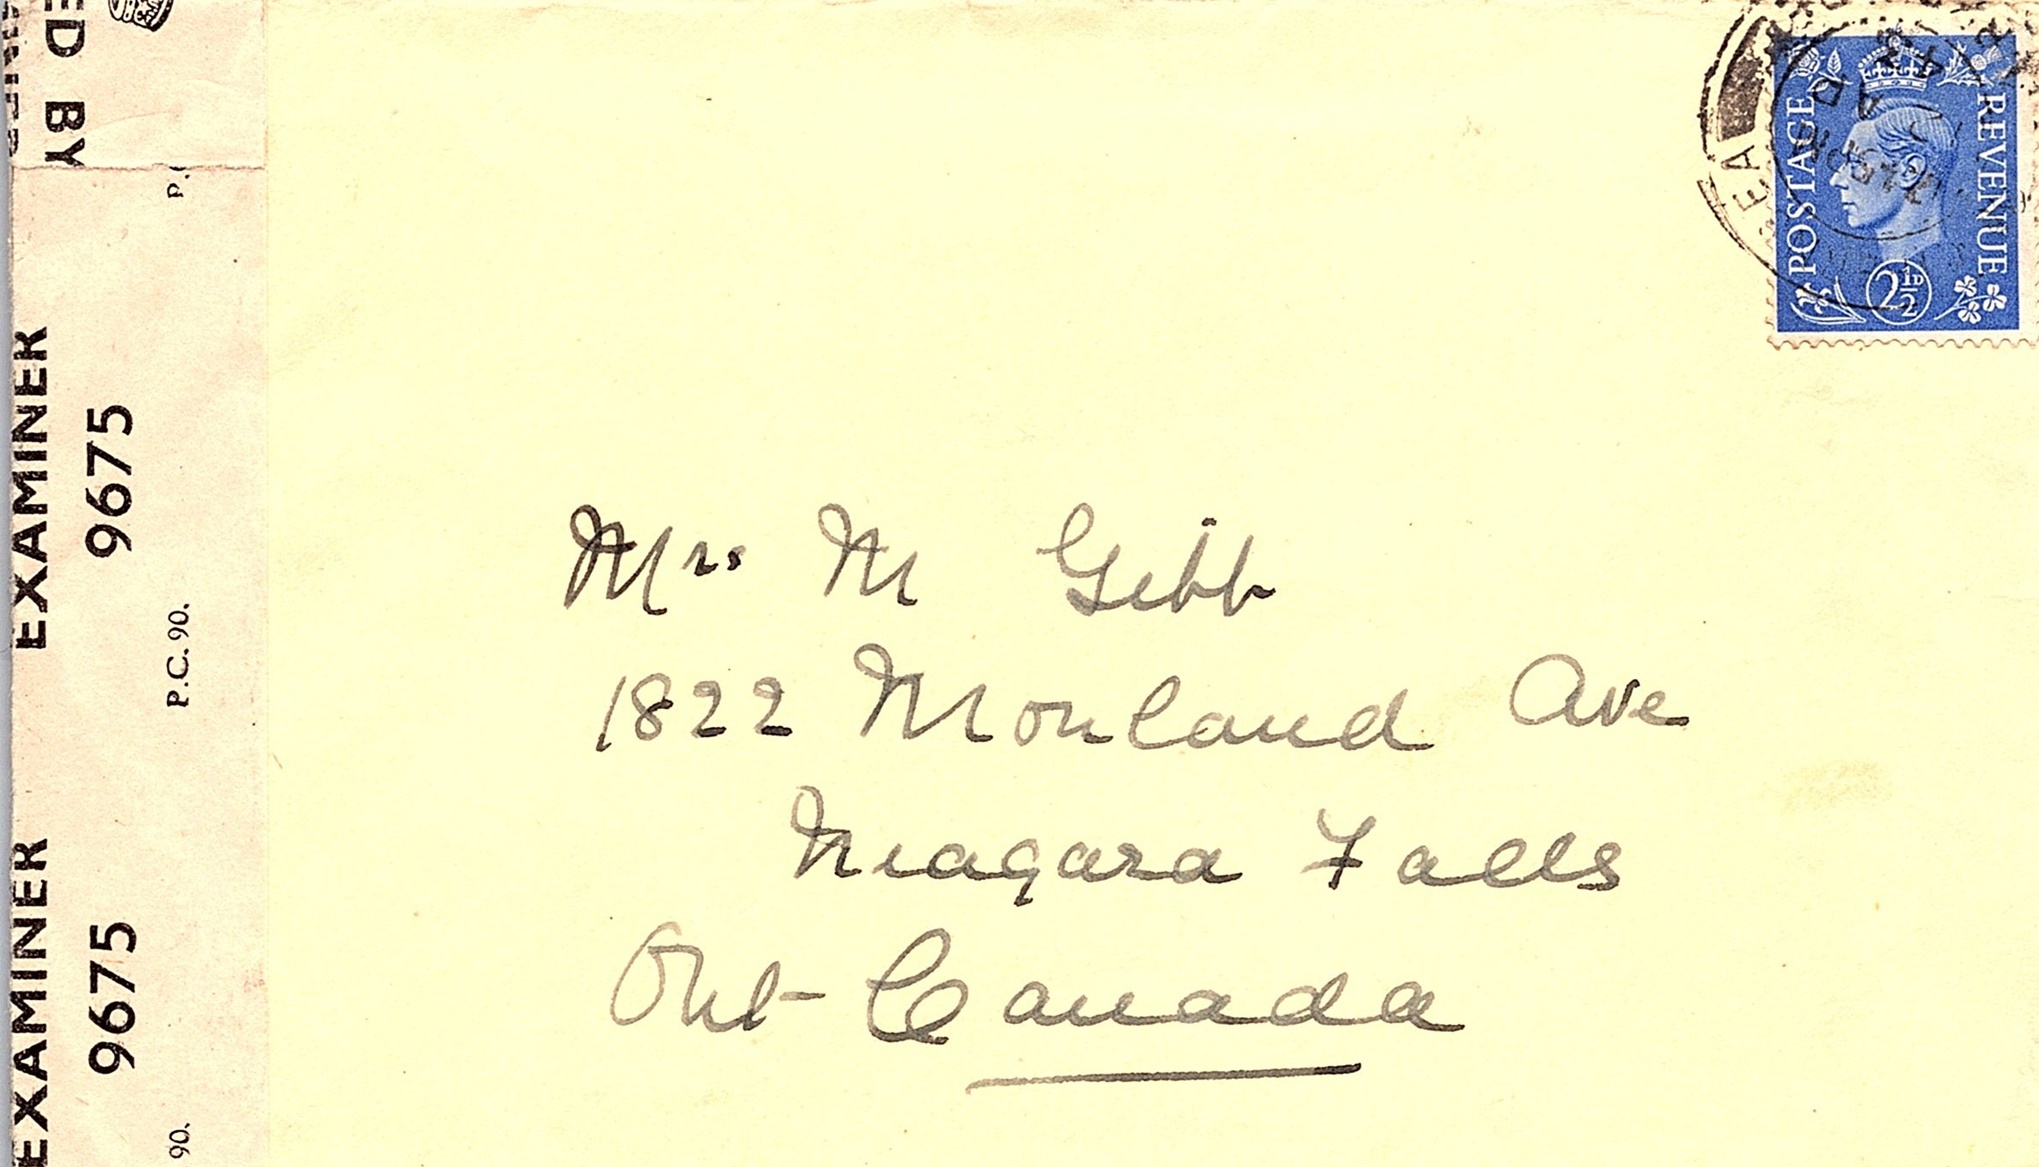 ED BY
EXAMINER
9675
P.C. 90.
EXAMINER
9675
90.
POSTAGE
REVENUE
2½D
43
Mrs M Gibb
1822 Monland Ave
Niagara Falls
Ont- Canada